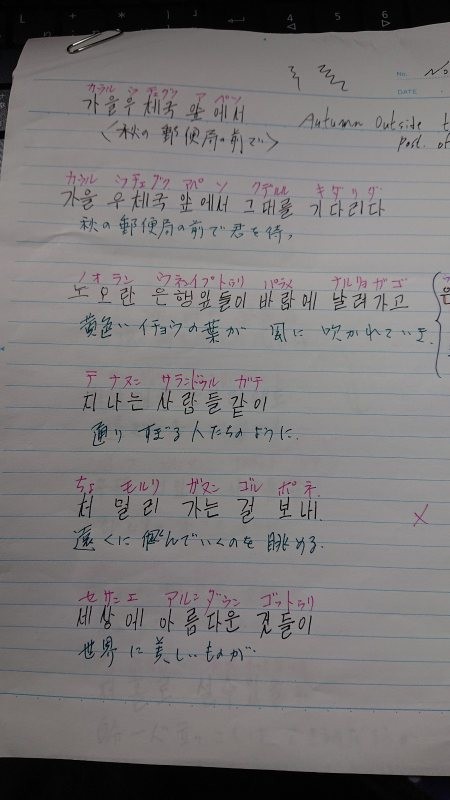 No.
DATE
カウル ウチェグク ア ペソ
가을우체국 앞에서
Autumn Outside
post of
〈秋の郵便局の前で〉
カウル ウチェグク アペソ クデルル キダリダ
가을 우체국 앞에서 그대를 기다리다
秋の郵便局の前で君を待つ
ノオラン ウネンイプトゥリ パラメ ナルリョガゴ
노오란 은행잎들이 바람에 날려가고
黄色いイチョウの葉が 風に 吹かれていき
チ ナヌン サラムドゥル ガチ
지나는 사람들같이
通りすぎる人たちのように
ちょ モルリ ガヌン ゴル ポネ
저 멀리 가는 걸 보네
遠くに 飛んでいくのを 眺める
セサンエ アルンダウン ゴットゥリ
세상에 아름다운 것들이
世界に美しいものが